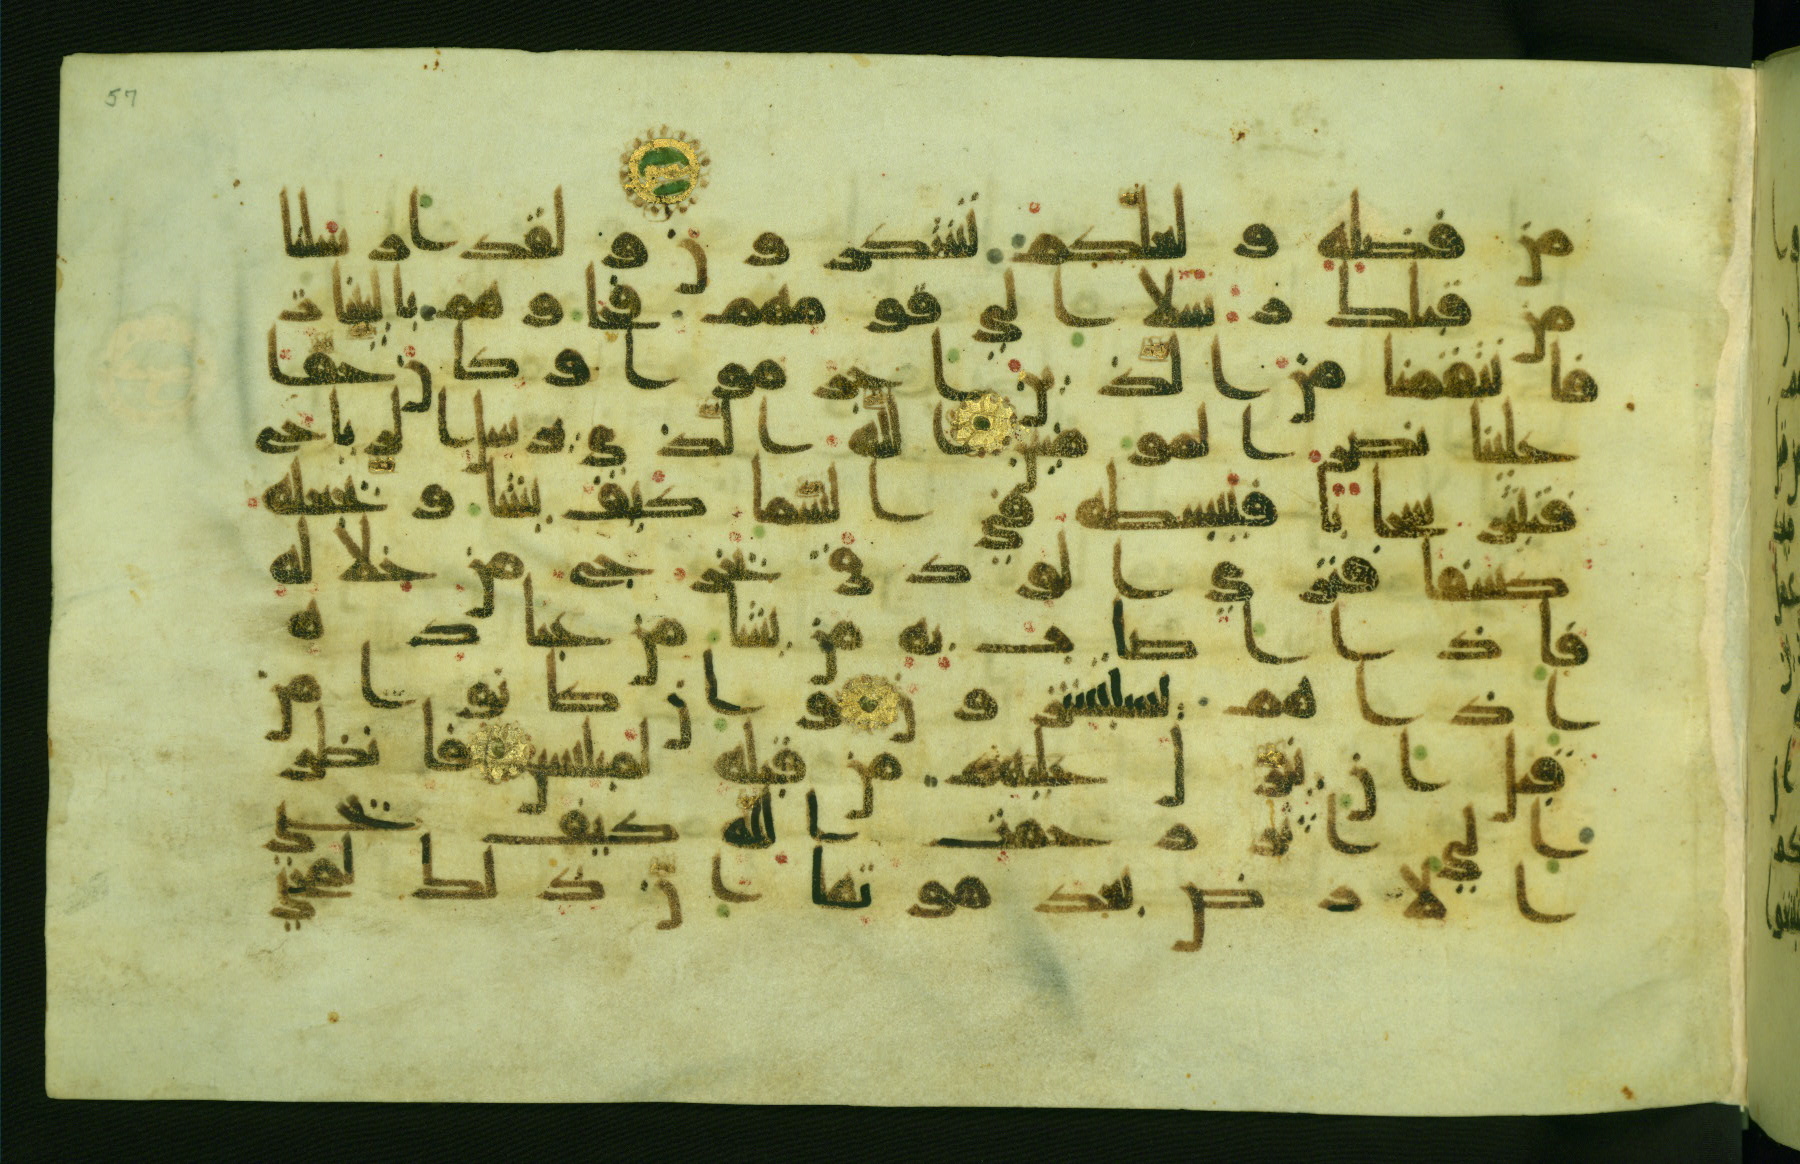 57
من فضله و لعلكم تشكرون و لقد ارسلنا
من قبلك رسلا الي قومهم فجاوهم بالبينات
فانتقمنا من الذين اجرموا و كان حقا
علينا نصر المومنين الله الذي يرسل الريح
فتثير سحابا فيبسطه في السما كيف يشا و يجعله
كسفا فتري الودق يخرج من خلاله
فاذا اصاب به من يشا من عباده
اذا هم يستبشرون و ان كانوا من
قبل ان ينزل عليهم من قبله لمبلسين فانظر
الي اثر رحمت الله كيف يحي
الارض بعد موتها ان ذلك لمحي